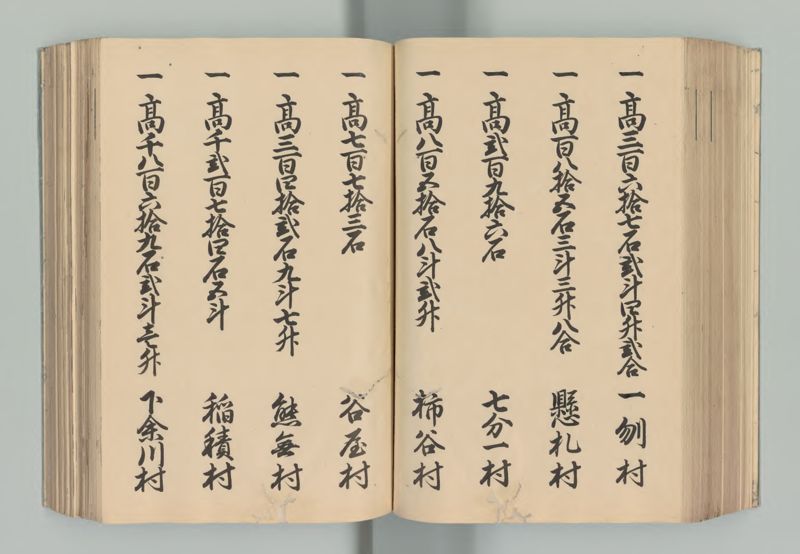 一高三百六拾七石弐斗四升弐合 一刎村
一高百八拾五石三斗三升八合 懸札村
一高弐百九拾六石 七分一村
一高八百五拾石八斗弐升 柿谷村
一高七百七拾三石 谷屋村
一高三百四拾弐石九斗七升 熊無村
一高千弐百七拾四石五斗 稲積村
一高千八百六拾九石弐斗壱升 下余川村